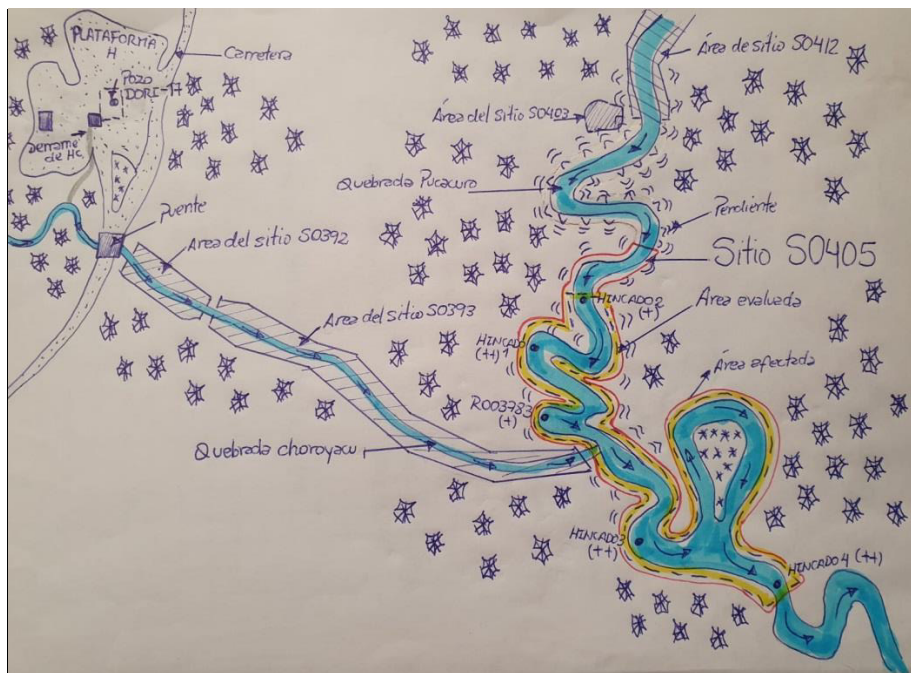 PLATAFORMA
H
Carretera
Pozo
DORI-17
derrame
de HC
Puente
Área del sitio S0392
Área del sitio S0393
Quebrada choroyacu
Área de sitio S0412
Área del sitio S0403
Quebrada Pucacuro
Pendiente
Sitio S0405
HINCADO2
(+)
Área evaluada
HINCADO
(++) 1
Área afectada
R003783
(+)
HINCADO3
(++)
HINCADO4 (++)